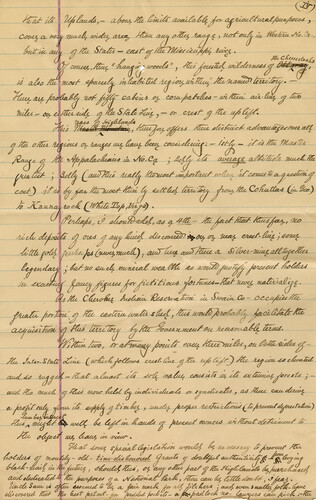 that its Uplands, - above the limits available for agricultural purposes,
cover a very much wider area than any other range, not only in Western No. Ca.
but in any of the States - east of the Mississippi river.
Of course, these "hanging woods", this forested wilderness of the Cherokees
is also the most sparsely inhabited region within the named territory.
There are probably not fifty cabins or camp-bodies - within air-line of two
miles - on either side of the State Line, - or crest of the uplift.
This therefore, offers three distinct advantages over all
the other regions or ranges we have been considering: 1stly - it is the Master
Range of the Appalachians in No. Ca.; 2dly its average altitude is much the
greater; 3dly (and this really the most important when it comes to a question of
cost) it is by far the most thinly settled territory from the Cohuttas (in Geo)
to Kannarock (White Top, Virga).
Perhaps, I should add, as a 4th - the fact that thus far, no
rich deposits of ores of any kind discovered on or near crest-line; some
little gold, perhaps (never, much), and here and there a silver-mine, all together
legendary; but no such mineral wealth as would justify present holders
in exacting fancy figures for fictitious fortunes - that never materialize.
As the Cherokee Indian Reservation in Swain Co - occupies the
greater portion of the eastern water shed, this would probably facilitate the
acquisition of this territory by the Government on reasonable terms.
Within two, or at many points even three miles, on both sides of
the Inter-State Line (which follows crest line of the uplift) the region so elevated
and so rugged - that almost its only value consists in its extensive forests;
and tho much of this now held by individuals or syndicates, as these can derive
a profit only from its supply of timber, under proper restrictions (to prevent devastation)
this, might well be left in hands of present owners without detriment to
the object we have in view.
That some special legislation would be necessary to prevent the
holders of
black-mail in the future, should this, or any other part of the Highlands be purchased
and dedicated to the purposes of a National Park, there can be little doubt.